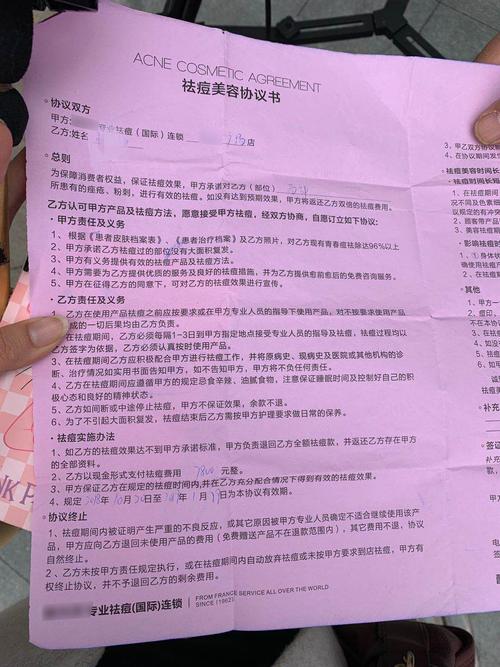 ACNE COSMETIC AGREEMENT
祛痘美容协议书
· 协议双方
甲方: 专业祛痘(国际)连锁 店
乙方:姓名
· 总则
为保障消费者权益,保证祛痘效果,甲方承诺对乙方(部位)
所患有的痤疮、粉刺,进行有效的祛痘。如没有达到预期效果,甲方将返还乙方双倍的祛痘费用。
乙方认可甲方产品及祛痘方法,愿意接受甲方祛痘,经双方协商,自愿订立如下协议:
· 甲方责任及义务
1、根据《患者皮肤档案表》、《患者治疗档案》及乙方照片,对乙方现有青春痘祛除达96%以上
2、甲方承诺乙方祛痘过的部位没有大面积复发。
3、甲方有义务提供有效的祛痘产品及祛痘方法。
4、甲方需要为乙方提供优质的服务及良好的祛痘措施,并为乙方提供愈前愈后的免费咨询服务。
5、甲方在征得乙方的同意下,可对乙方的祛痘效果进行宣传。
· 乙方责任及义务
1、乙方在使用产品祛痘之前应按要求或在甲方专业人员的指导下使用产品,对不按要求使用产
成的一切后果均由乙方负责。
在祛痘期间,乙方必须每隔1-3日到甲方指定地点接受专业人员的指导及祛痘,祛痘过程均以
乙方签字为依据,乙方必须认真按时使用产品。
3、在祛痘期间乙方应积极配合甲方进行祛痘工作,并将原病史、现病史及医院或其他机构的诊
断、治疗情况如实用书面告知甲方,如不告知甲方,甲方将不负任何责任。
4、乙方在祛痘期间应遵循甲方的规定忌食辛辣、油腻食物,注意保证睡眠时间及控制好自己的积
极心态和良好的精神状态。
5、乙方如间断或中途停止祛痘,甲方不保证效果,余款不退。
6、为了不引起大面积复发,祛痘结束后乙方需按甲方护理要求做日常的保养。
· 祛痘实施办法
1、如乙方的祛痘效果达不到甲方承诺标准,甲方负责退回乙方全额祛痘款,并返还乙方存在甲方
的全部资料。
2、乙方以现金形式支付祛痘费用 7800 元整。
3、甲方保证乙方在规定的祛痘时间内,并在乙方充分配合情况下得到有效的祛痘效果。
4、规定 年10月20日至 年1月 日为本协议有效期。
· 协议终止
1、祛痘期间内被证明产生严重的不良反应,或其它原因被甲方专业人员确定不适合继续使用该产
品,甲方应向乙方退回未使用产品的费用(免费赠送产品不在退款范围内),其它费用不退,协议
自然终止。
2、乙方未按甲方责任规定执行,或在祛痘期间内自动放弃祛痘或未按甲方要求到店祛痘,甲方有
权终止协议,并不予退还乙方的剩余费用。
专业祛痘(国际)连锁
FROM FRANCE SERVICE ALL OVER THE WORLD
SINCE (1962)
3、甲乙双方协议
4、在协议期间发
· 祛痘美容时间长
· 祛痘时间长短
1、在祛痘期间
况不同及色素细
议规定的有冲突
2、顾客带产品
3、美容祛痘期
· 影响祛痘
1、①身体状
确使用祛痘产
2、在祛痘期
· 其他
1、甲方一
2、痘印,
不在本协议
3、如没有
4、如发
5、如果
诚
签
· 签证
补充